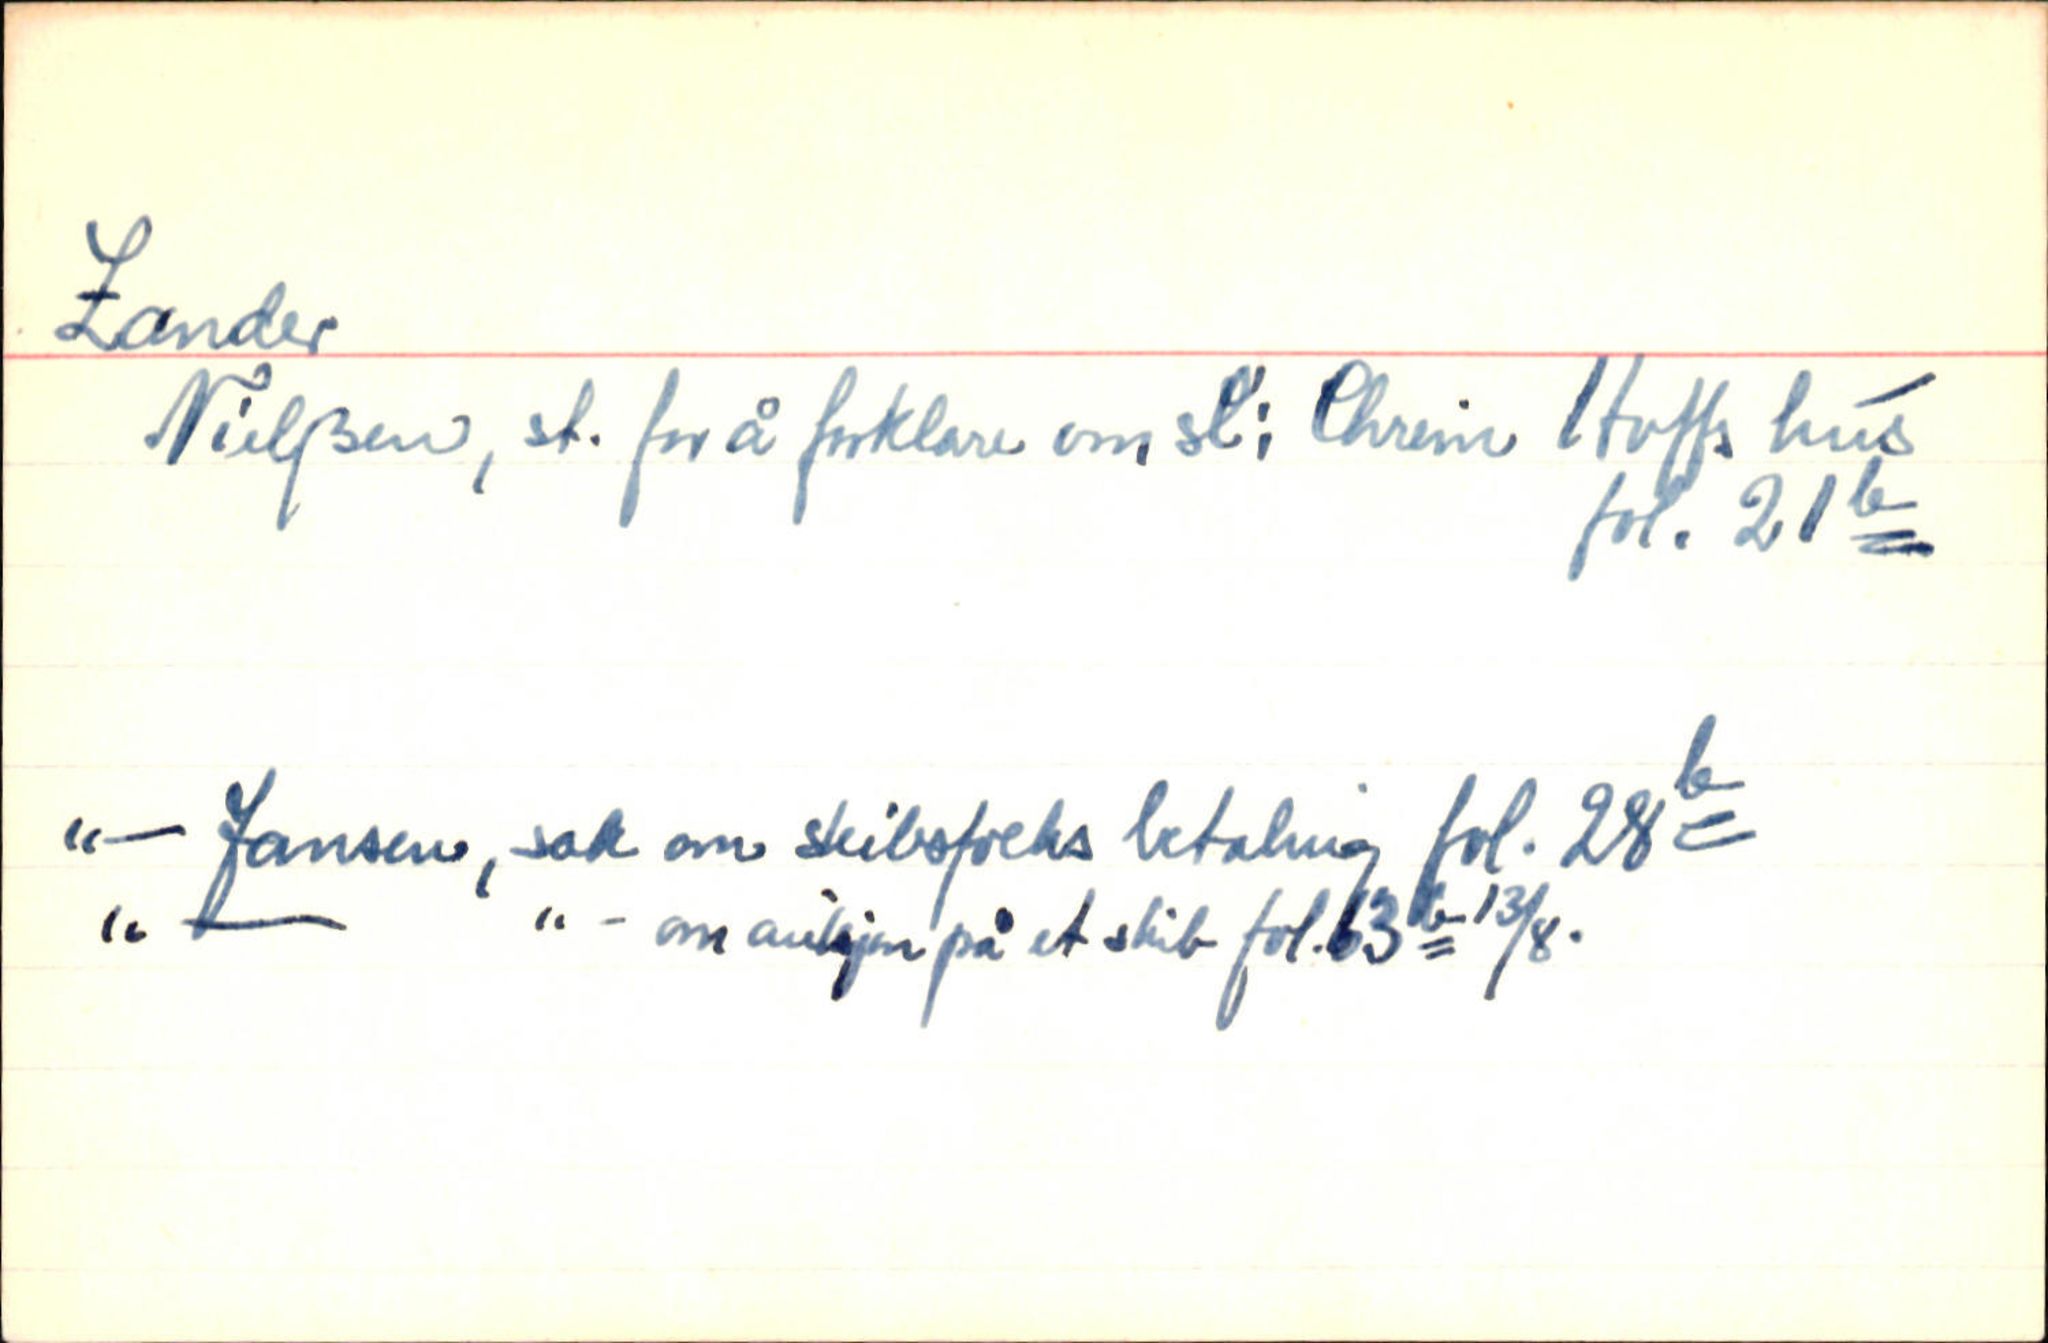 Zander
Nielßen, st. for å forklare om sl: Chrein Hoffs hus
fol. 21 b
"— Jansen, sak om skibsfolks betaling fol. 28 b
"— "- om auksjon på et skib fol. 63 b 13/8.